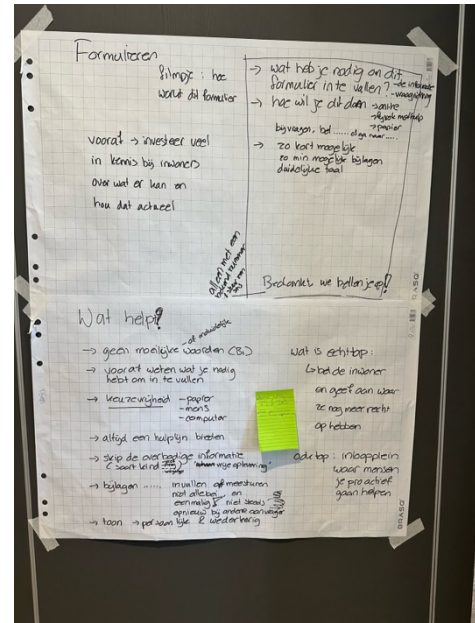 Formulieren
filmpje: hoe
werkt dit formulier
vooraf → investeer veel
in kennis bij inwoners
over wat er kan en
hou dat actueel
→ wat heb je nodig om dit
formulier in te vullen? - de informatie
- vraagstelling
→ hoe wil je dit doen → online
→ fysiek met hulp
→ papier
bij vragen, bel ...... of ga naar .....
→ zo kort mogelijk
zo min mogelijk bijlagen
duidelijke taal
alleen met een
bekend nummer
Bedankt, we bellen je op!
Wat helpt?
→ geen moeilijke woorden (B1)
→ vooraf weten wat je nodig
hebt om in te vullen
→ keuzevrijheid - papier
- mens
- computer
→ altijd een hulplijn bieden
→ skip de overbodige informatie
(soort kind "wijze opleiding"
→ bijlagen ...... invullen of meesturen
niet allebei, en
eenmalig niet steeds
opnieuw bij andere aanvrager
→ toon → persoonlijk & wederkerig
wat is echt top:
↳ bel de inwoner
en geef aan waar
ze nog meer recht
op hebben
ook top: inloopplein
waar mensen
je proactief
gaan helpen
BRASQ
BRASQ